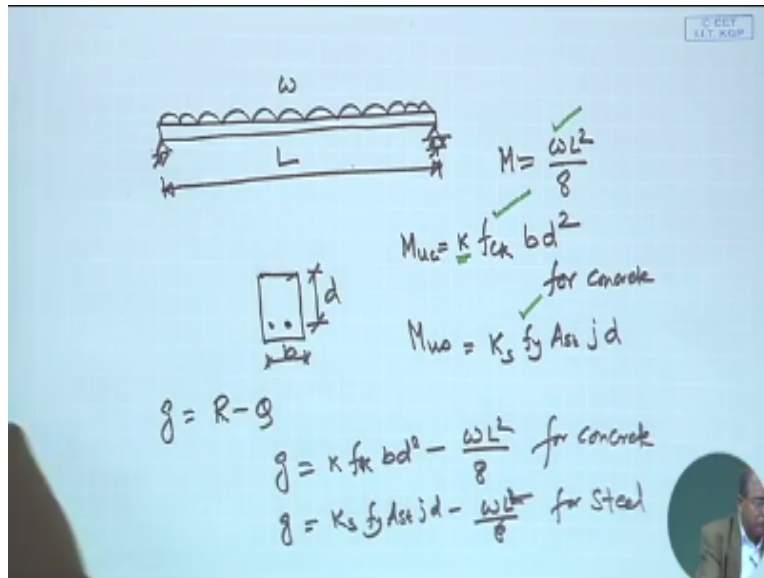 © CET
I.I.T. KGP
ω
L
M = ωL²/8
Muc = k fck bd²
for concrete
d
Mus = Ks fy Ast jd
b
g = R - Q
g = k fck bd² - ωL²/8 for concrete
g = Ks fy Ast jd - ωL²/8 for steel